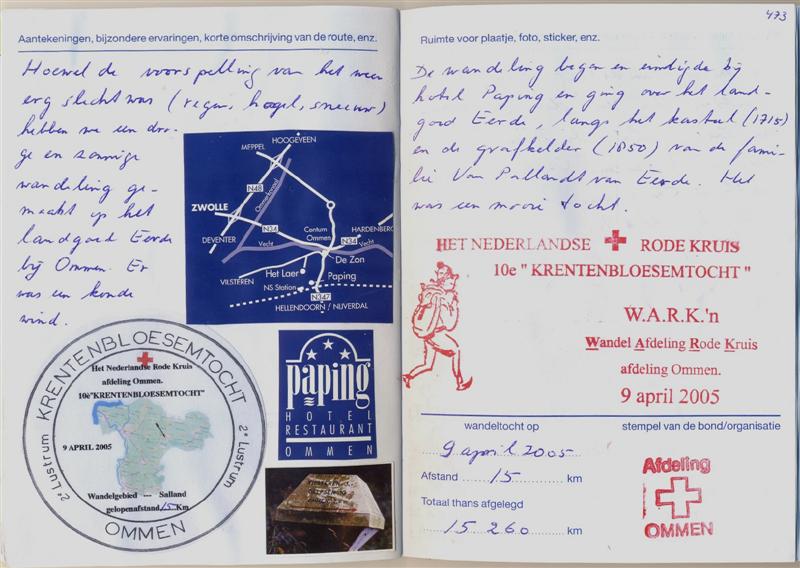 Aantekeningen, bijzondere ervaringen, korte omschrijving van de route, enz.
Hoewel de voorspelling van het weer
erg slecht was (regen, hagel, sneeuw)
hebben we een dro-
ge en zonnige
wandeling ge-
maakt op het
landgoed Eerde
bij Ommen. Er
was een koude
wind.
HOOGEVEEN
MEPPEL
N48
Ommerkanaal
ZWOLLE
N34
Centum
Ommen
HARDENBERG
N34
DEVENTER
Vecht
Vecht
De Zon
Het Laer
Paping
VILSTEREN
NS Station
N347
HELLENDOORN / NIJVERDAL
KRENTENBLOESEMTOCHT
2e Lustrum
2e Lustrum
OMMEN
Het Nederlandse Rode Kruis
afdeling Ommen.
10e"KRENTENBLOESEMTOCHT"
9 APRIL 2005
Wandelgebied --- Salland
gelopenafstand 15 Km
paping
HOTEL
RESTAURANT
OMMEN
473
Ruimte voor plaatje, foto, sticker, enz.
De wandeling begon en eindigde bij
hotel Paping en ging over het land-
goed Eerde, langs het kasteel (1715)
en de grafkelder (1850) van de fami-
lie Van Pallandt van Eerde. Het
was een mooie tocht.
HET NEDERLANDSE RODE KRUIS
10e " KRENTENBLOESEMTOCHT "
W.A.R.K.'n
Wandel Afdeling Rode Kruis
afdeling Ommen.
9 april 2005
wandeltocht op
9 april 2005
Afstand 15 km
Totaal thans afgelegd
15 260 km
stempel van de bond/organisatie
Afdeling
OMMEN